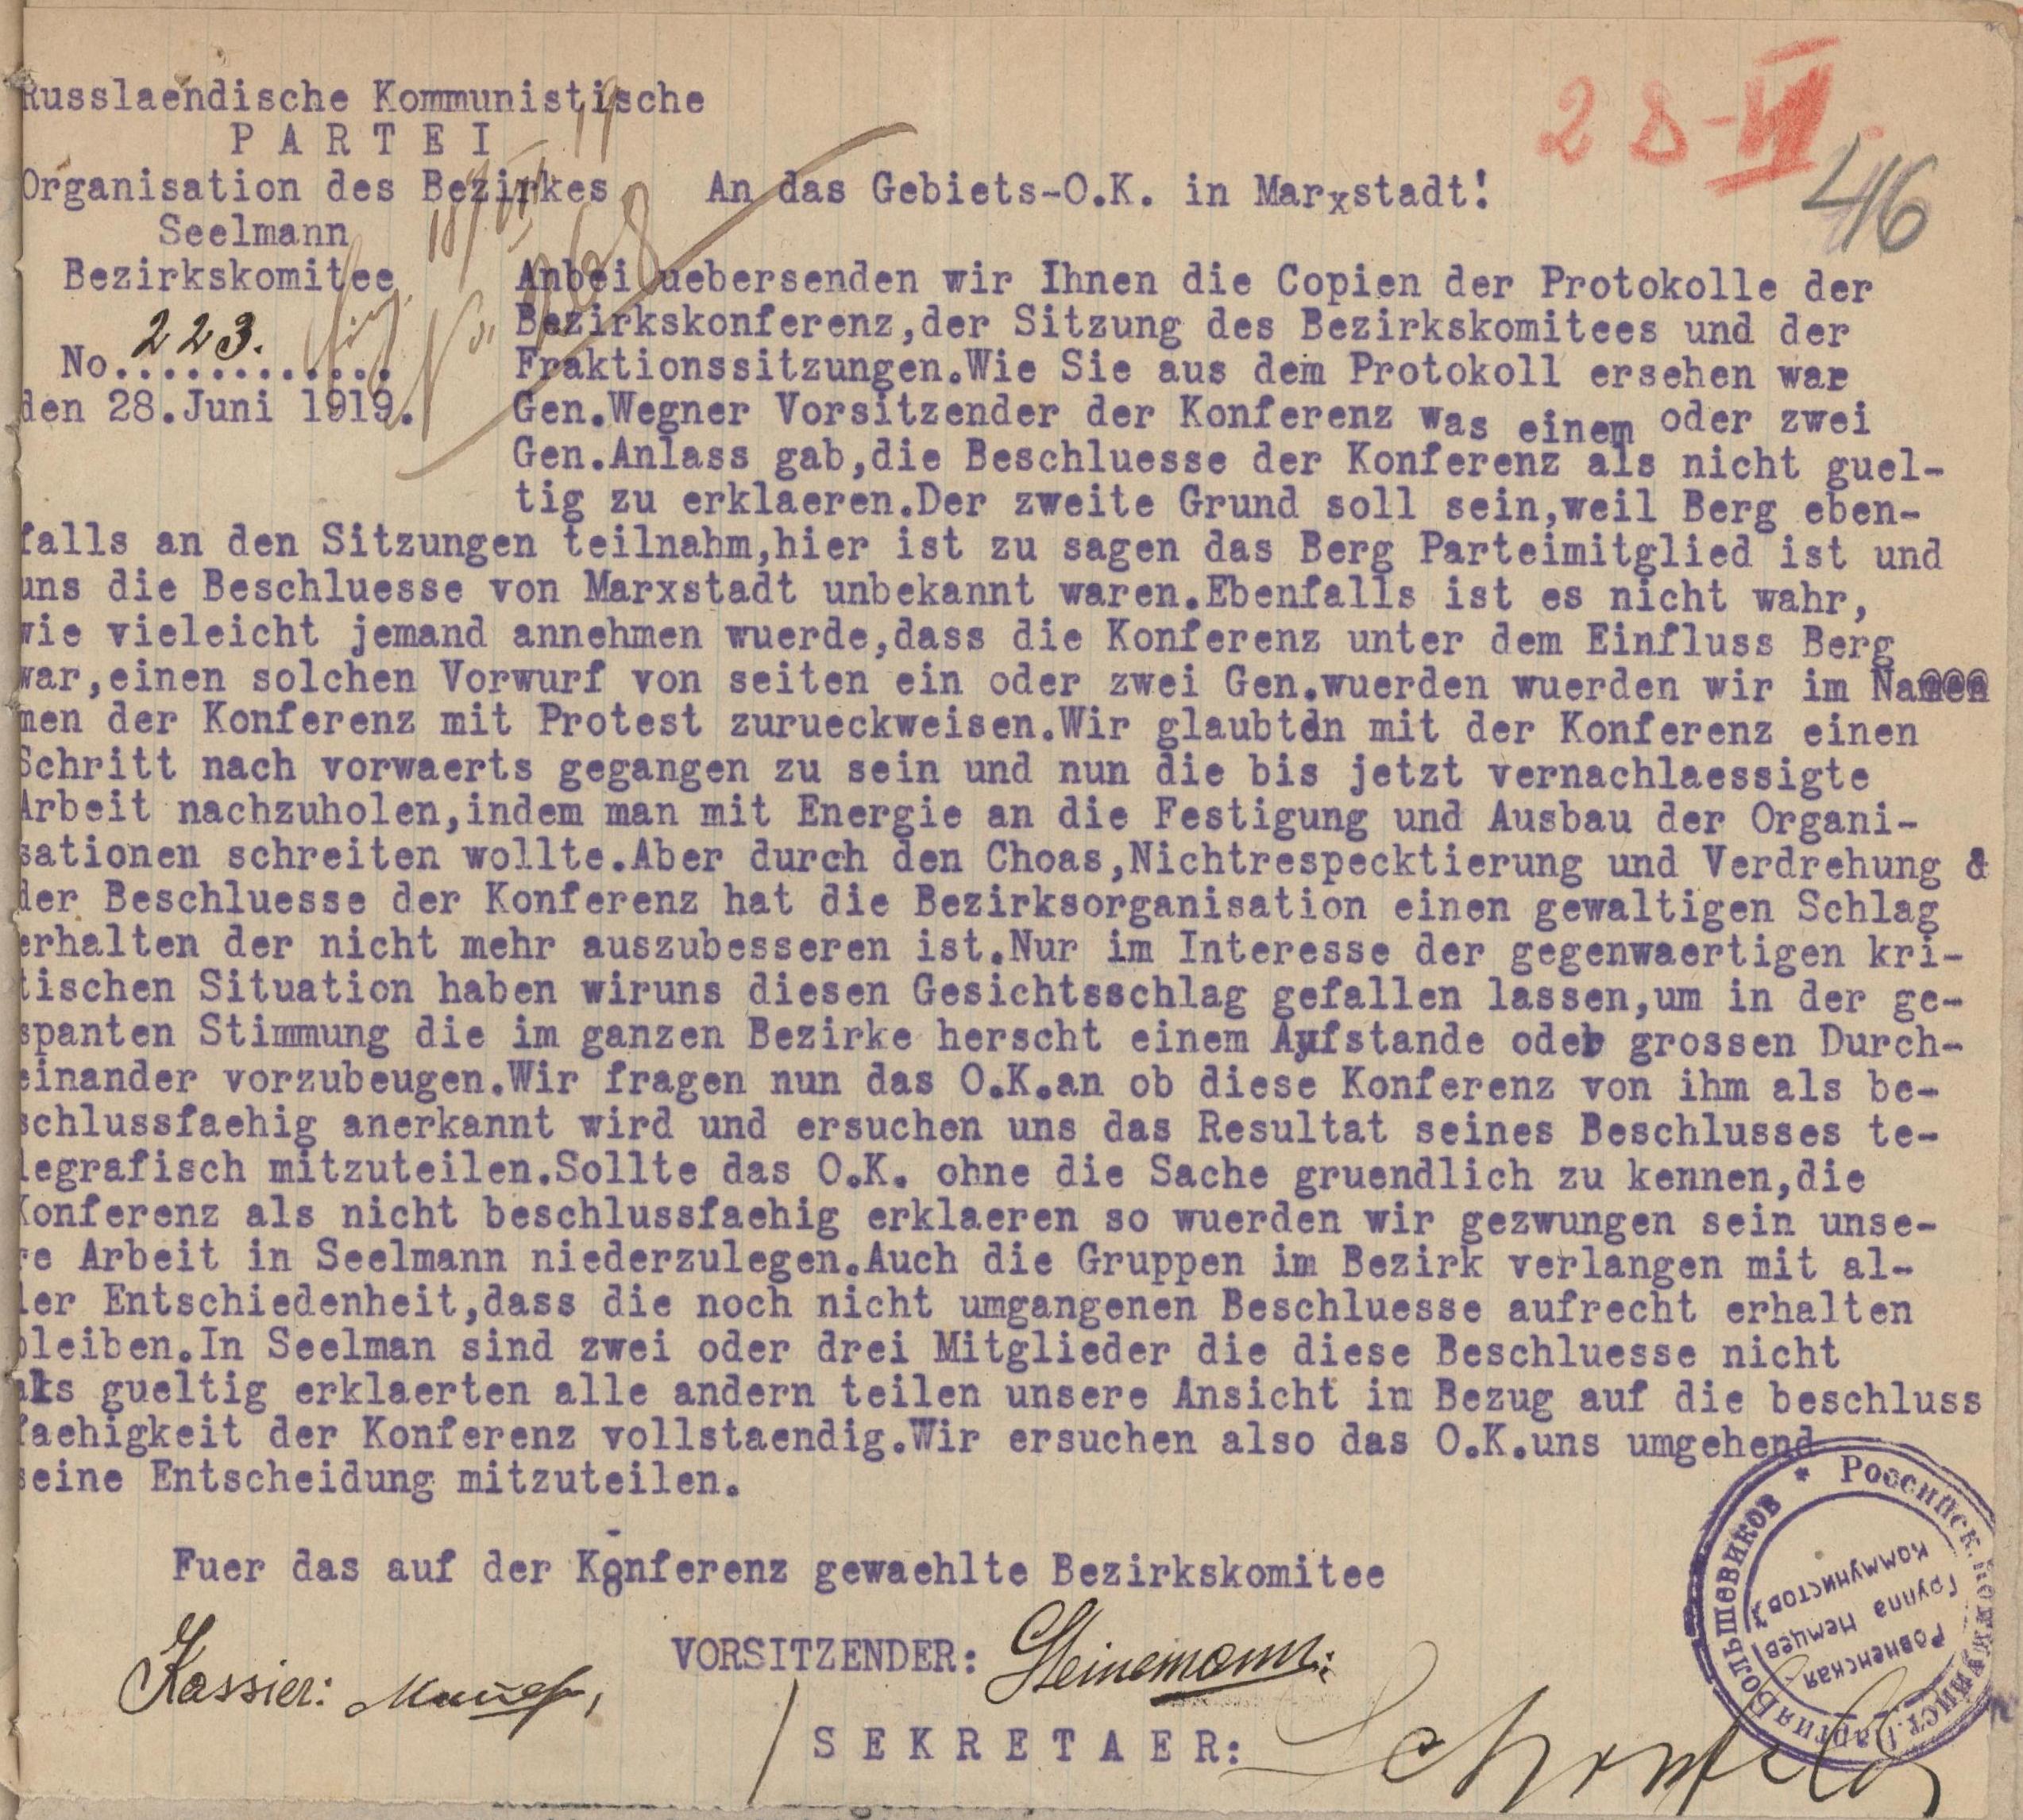 Russlaendische Kommunistische
P A R T E I
Organisation des Bezirkes
Seelmann
Bezirkskomitee
No. 223.
den 28.Juni 1919.
28-VI
46
An das Gebiets-O.K. in Marxstadt!
No. 268
Anbei uebersenden wir Ihnen die Copien der Protokolle der
Bezirkskonferenz,der Sitzung des Bezirkskomitees und der
Fraktionssitzungen.Wie Sie aus dem Protokoll ersehen war
Gen.Wegner Vorsitzender der Konferenz was einem oder zwei
Gen.Anlass gab,die Beschluesse der Konferenz als nicht guel-
tig zu erklaeren.Der zweite Grund soll sein,weil Berg eben-
falls an den Sitzungen teilnahm,hier ist zu sagen das Berg Parteimitglied ist und
uns die Beschluesse von Marxstadt unbekannt waren.Ebenfalls ist es nicht wahr,
wie vieleicht jemand annehmen wuerde,dass die Konferenz unter dem Einfluss Berg
war,einen solchen Vorwurf von seiten ein oder zwei Gen.wuerden wuerden wir im Na
men der Konferenz mit Protest zurueckweisen.Wir glaubten mit der Konferenz einen
Schritt nach vorwaerts gegangen zu sein und nun die bis jetzt vernachlaessigte
Arbeit nachzuholen,indem man mit Energie an die Festigung und Ausbau der Organi-
sationen schreiten wollte.Aber durch den Choas,Nichtrespecktierung und Verdrehung &
der Beschluesse der Konferenz hat die Bezirksorganisation einen gewaltigen Schlag
erhalten der nicht mehr auszubesseren ist.Nur im Interesse der gegenwaertigen kri-
tischen Situation haben wiruns diesen Gesichtsschlag gefallen lassen,um in der ge-
spanten Stimmung die im ganzen Bezirke herscht einem Aufstande oder grossen Durch-
einander vorzubeugen.Wir fragen nun das O.K.an ob diese Konferenz von ihm als be-
schlussfaehig anerkannt wird und ersuchen uns das Resultat seines Beschlusses te-
legrafisch mitzuteilen.Sollte das O.K. ohne die Sache gruendlich zu kennen,die
Konferenz als nicht beschlussfaehig erklaeren so wuerden wir gezwungen sein unse-
re Arbeit in Seelmann niederzulegen.Auch die Gruppen im Bezirk verlangen mit al-
ler Entschiedenheit,dass die noch nicht umgangenen Beschluesse aufrecht erhalten
bleiben.In Seelman sind zwei oder drei Mitglieder die diese Beschluesse nicht
als gueltig erklaerten alle andern teilen unsere Ansicht in Bezug auf die beschluss
faehigkeit der Konferenz vollstaendig.Wir ersuchen also das O.K.uns umgehend
seine Entscheidung mitzuteilen.
Fuer das auf der Konferenz gewaehlte Bezirkskomitee
VORSITZENDER: Steinemann:
Kassier:
S E K R E T A E R: Schönfeld
* Российск. Коммунист. Партия Большевиков
Ровненская
Группа Немцев
Коммунистов